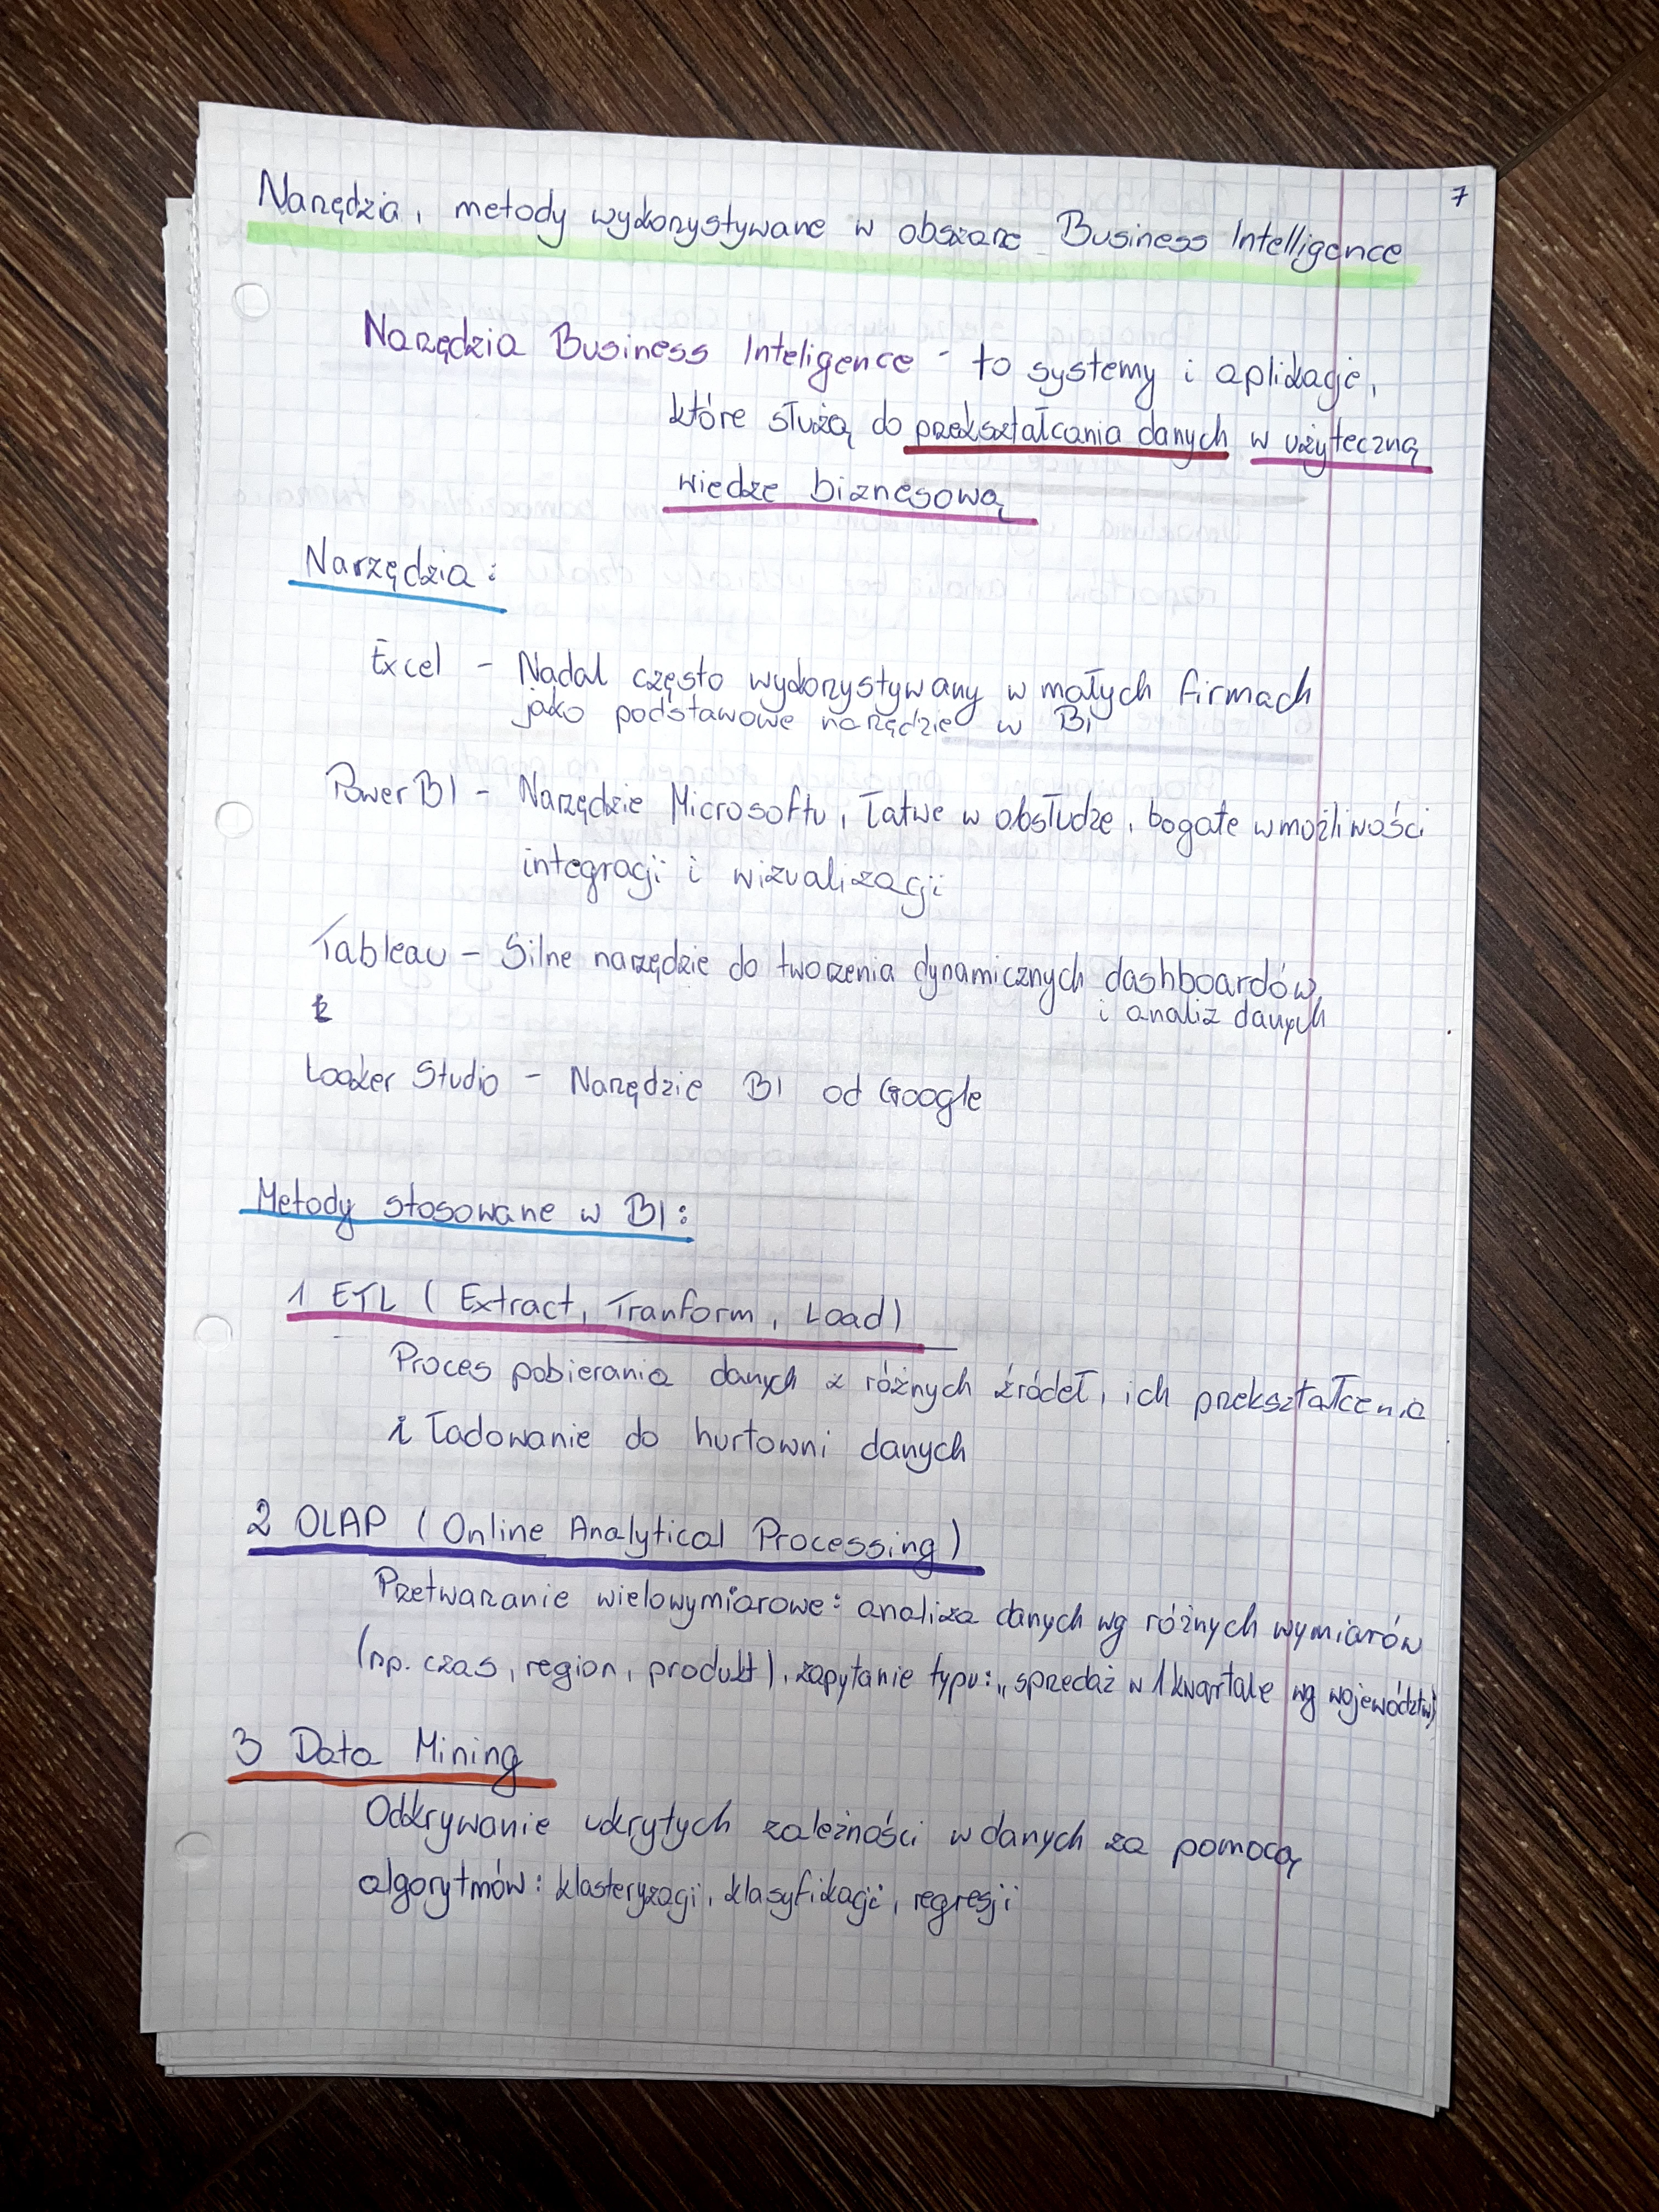 7
Narzędzia, metody wykorzystywane w obszarze Business Intelligence
Narzędzia Business Inteligence - to systemy i aplikacje,
które służą do przekształcania danych w użyteczną
wiedze biznesową
Narzędzia:
Excel - Nadal często wykorzystywany w małych firmach
jako podstawowe narzędzie w BI
Power BI - Narzędzie Microsoftu, łatwe w obsłudze, bogate w możliwości
integracji i wizualizacji
Tableau - Silne narzędzie do tworzenia dynamicznych dashboardów,
i analiz danych
Looker Studio - Narzędzie BI od Google
Metody stosowane w BI:
1 ETL ( Extract, Tranform, Load)
Proces pobierania danych z różnych źródeł, ich przekształcenia
i ładowanie do hurtowni danych
2 OLAP ( Online Analytical Processing )
Przetwarzanie wielowymiarowe: analiza danych wg różnych wymiarów
(np. czas, region, produkt), zapytanie typu: „sprzedaż w 1 kwartale wg województw"
3 Data Mining
Odkrywanie ukrytych zależności w danych za pomocą
algorytmów: klasteryzacji, klasyfikacji, regresji